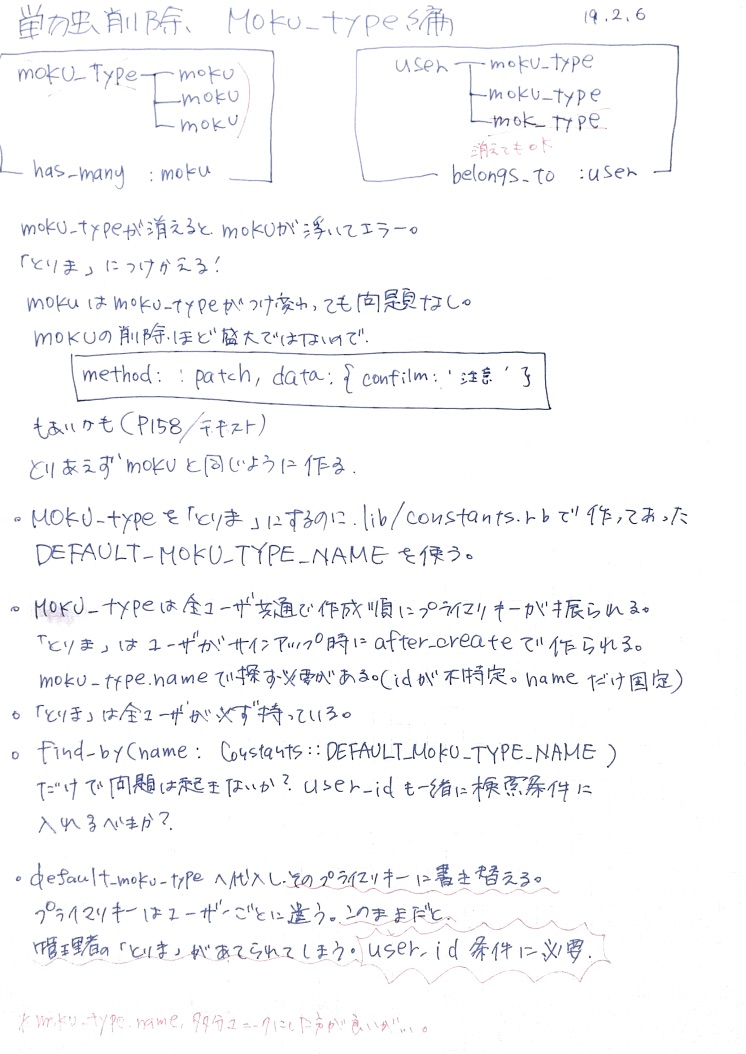 単独削除、MOKU_type編
19.2.6
moku_Type moku
moku
moku
has_many :moku
user moku_type
moku_type
mok_type
消えてもok
belongs_to :user
moku_typeが消えると、mokuが浮いてエラー。
「とりま」につけかえる!
mokuはmoku_typeがつけ変わっても問題なし。
mokuの削除ほど盛大ではないので、
method: :patch, data: { confilm: '注意' }
もあいかも(P158/テキスト)
とりあえずmokuと同じように作る.
・MOKU_typeを「とりま」にするのに、lib/constants.rbで作ってあった
DEFAULT_MOKU_TYPE_NAMEを使う。
・MOKU_typeは全ユーザ共通で作成順にプライマリキーが振られる。
「とりま」はユーザがサインアップ時にafter_createで作られる。
moku_type.nameで探す必要がある。(idが不特定。nameだけ固定)
・「とりま」は全ユーザが必ず持っている。
・find_by(name: Constants::DEFAULT_MOKU_TYPE_NAME)
だけで問題は起きないか?user_idも一緒に検索条件に
入れるべきか?
・default_moku_typeへ代入し、そのプライマリキーに書き替える。
プライマリキーはユーザーごとに違う。このままだと、
管理者の「とりま」があてられてしまう。user_id条件に必要.
moku_type.name,